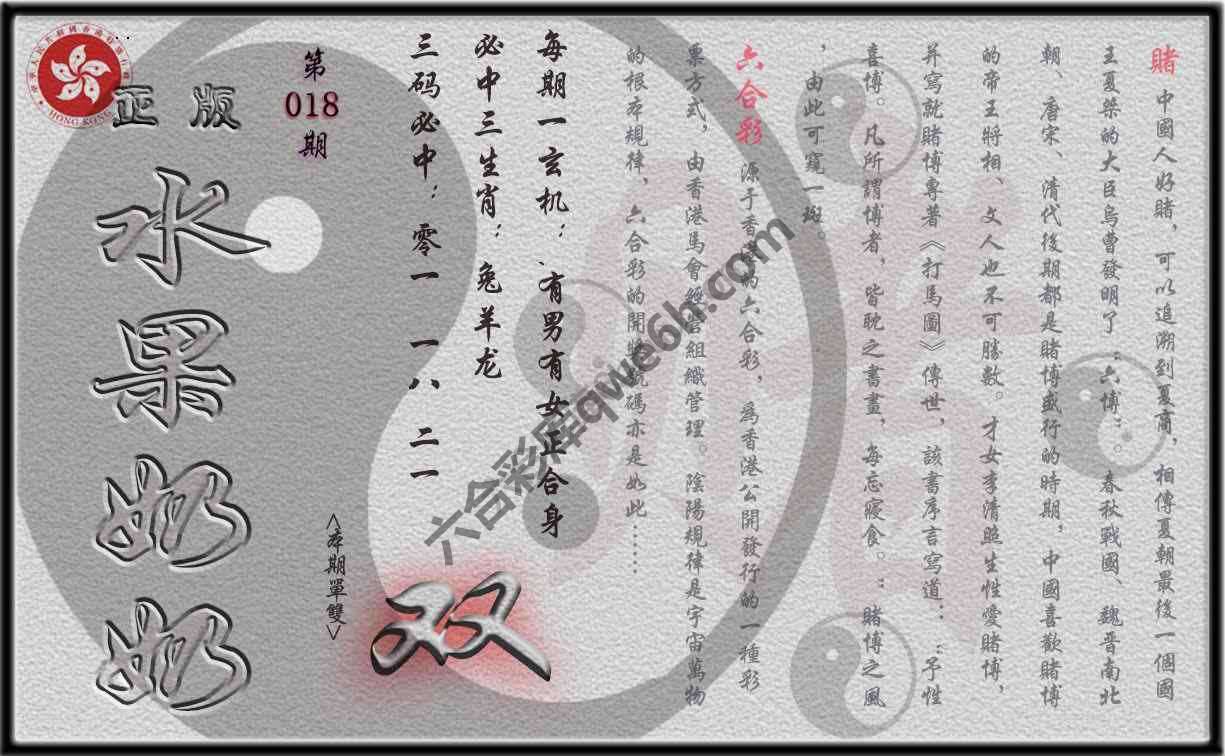 賭 中國人好賭，可以追溯到夏商，相傳夏朝最後一個國
王夏桀的大臣烏曹發明了：六博：。春秋戰國、魏晋南北
朝、唐宋、清代後期都是賭博盛行的時期，中國喜歡賭博
的帝王將相、文人也不可勝數。才女李清照生性愛賭博，
并寫就賭博專著《打馬圖》傳世，該書序言寫道：：予性
喜博。凡所謂博者，皆耽之書畫，每忘寢食。：賭博之風
，由此可窺一斑。
六合彩 源于香港的六合彩，爲香港公開發行的一種彩
票方式，由香港馬會經營組織管理。陰陽規律是宇宙萬物
的根本規律、六合彩的開獎號碼亦是如此……
每期一玄机：有男有女正合身
必中三生肖：兔羊龙
三码必中：零一 一八 二一
第
018
期
<本期單雙>
双
正版
水果奶奶
HONG KONG
六合彩库qwe6h.com